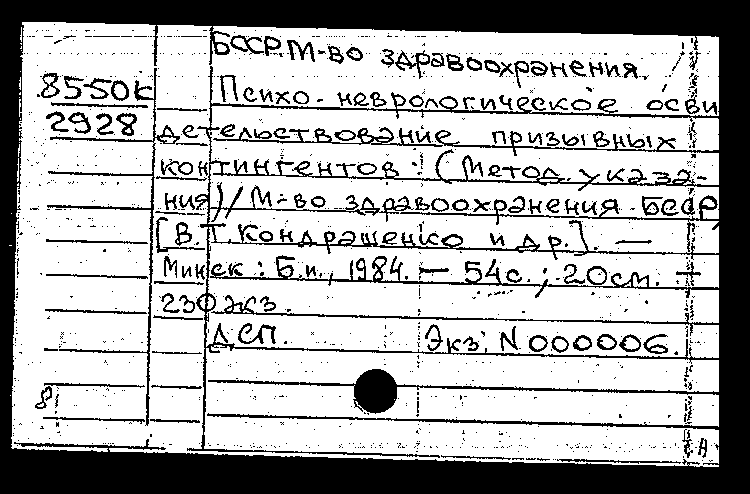 БССР. М-во здравоохранения.
85-50к
Психо-неврологическое осви
2928
детельствование призывных
контингентов: (Метод. указа-
ния) / М-во здравоохранения БССР,
[В.Т. Кондрашенко и др.]. —
Минск: Б.и., 1984. — 54с.; 20см. —
230 экз.
ДСП. Экз. N 000006.
8
А